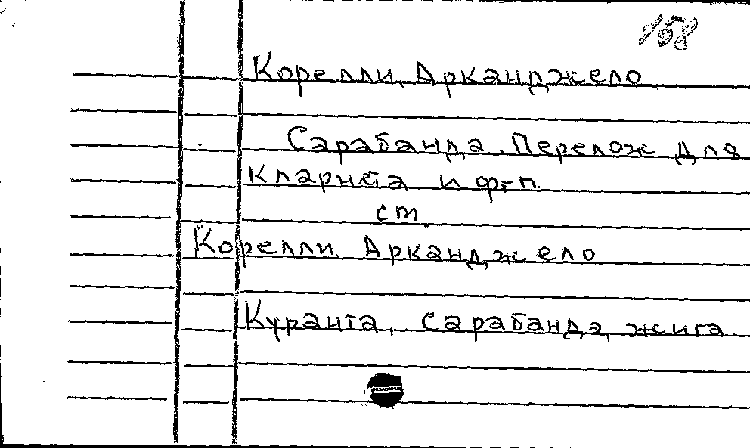 158
Корелли, Арканджело
Сарабанда. Перелож для
кларнета и ф-п.
ст.
Корелли Арканджело
Куранта, сарабанда, жига